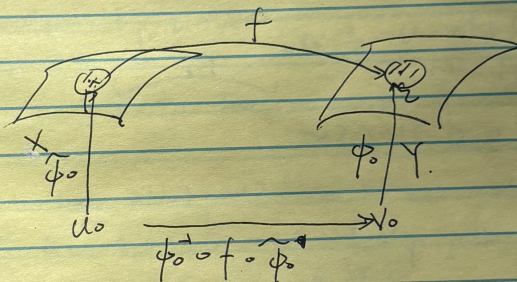 f
X
φ̃₀
φ₀ Y.
U₀ V₀
φ₀⁻¹ ∘ f ∘ φ̃₀